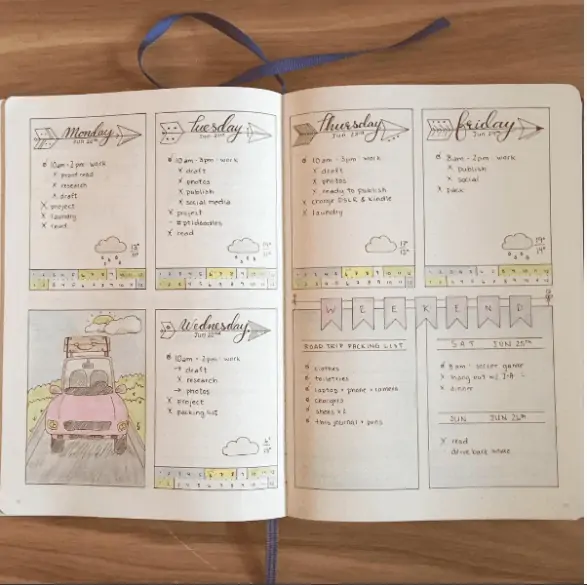 Monday
JUN 20th
10am - 2pm : work
x proof read
x research
x draft
x project
x laundry
x read
Tuesday
JUN 21st
10am - 3pm : work
x draft
x photos
x publish
x social media
x project
x read
Wednesday
10am - 2pm : work
→ draft
x research
→ photos
x project
x packing list
Thursday
10am - 3pm : work
x draft
x photos
x ready to publish
x charge DSLR & kindle
x laundry
friday
JUN 24th
8am - 2pm : work
x publish
x social
x pack
WEEKEND
ROAD TRIP PACKING LIST
clothes
toiletries
laptop + phone + camera
chargers
shoes x2
this journal + pens
SAT JUN 25th
9am : soccer game
x hang out w/
x dinner
SUN JUN 26th
x read
drive back home